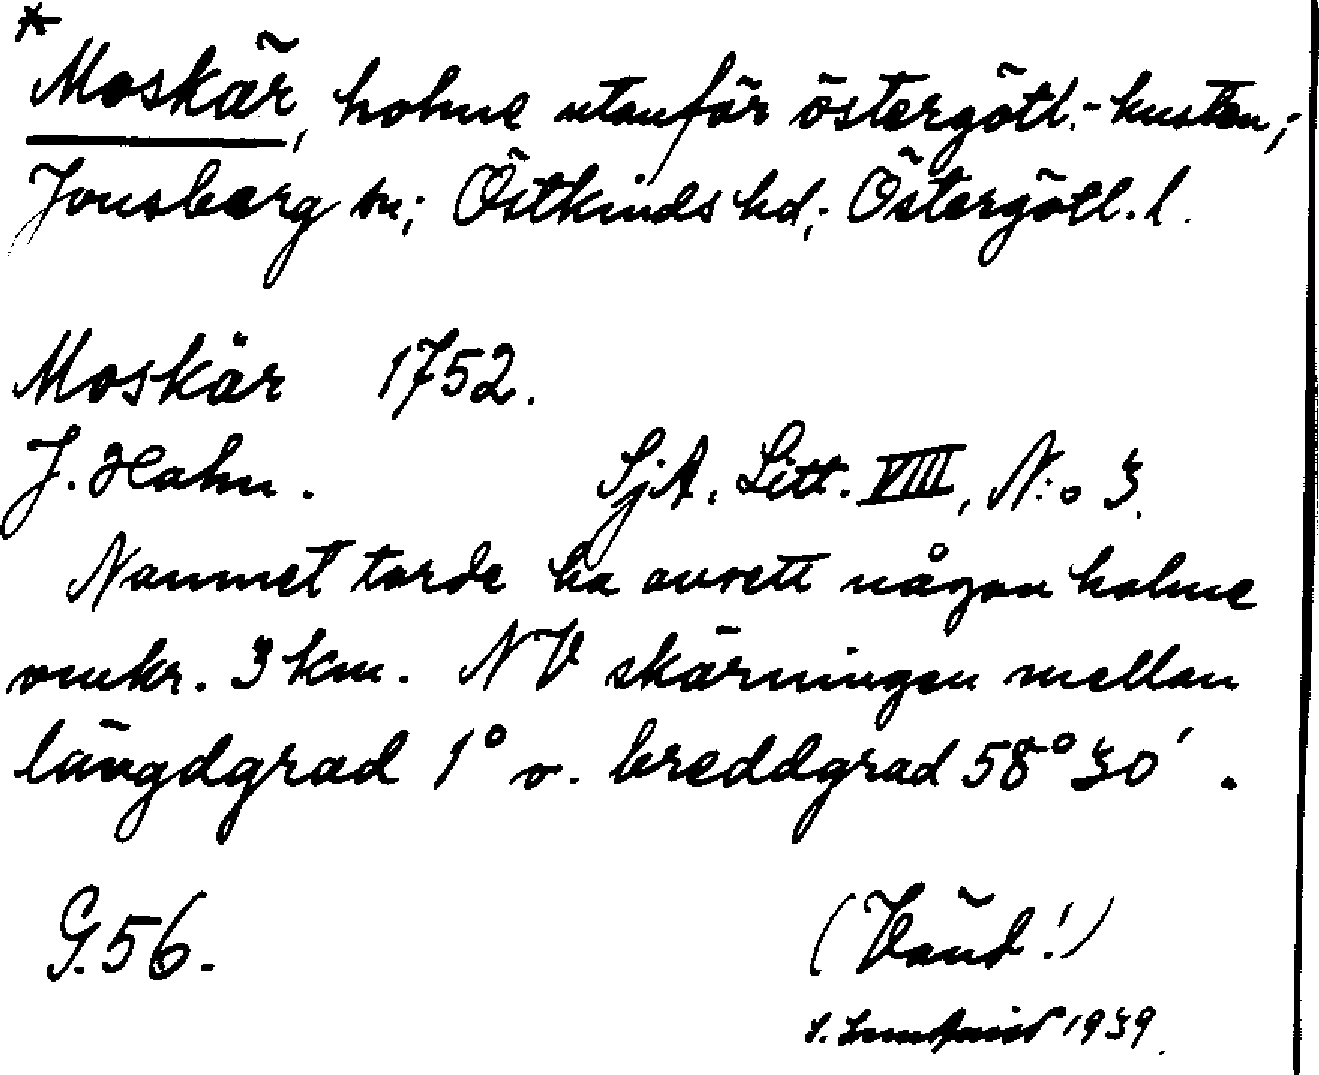 *
Moskär, holme utanför östergötl.-kusten;
Jonsberg sn; Östkinds hd; Östergötl. l.
Moskär 1752.
J. Hahn. SjA. Litt. VIIII, N:o 3.
Namnet torde ha avsett någon holme
omkr. 3 km. NV skärningen mellan
längdgrad 1° o. breddgrad 58° 30′.
G. 56. (Vänd!)
1939.